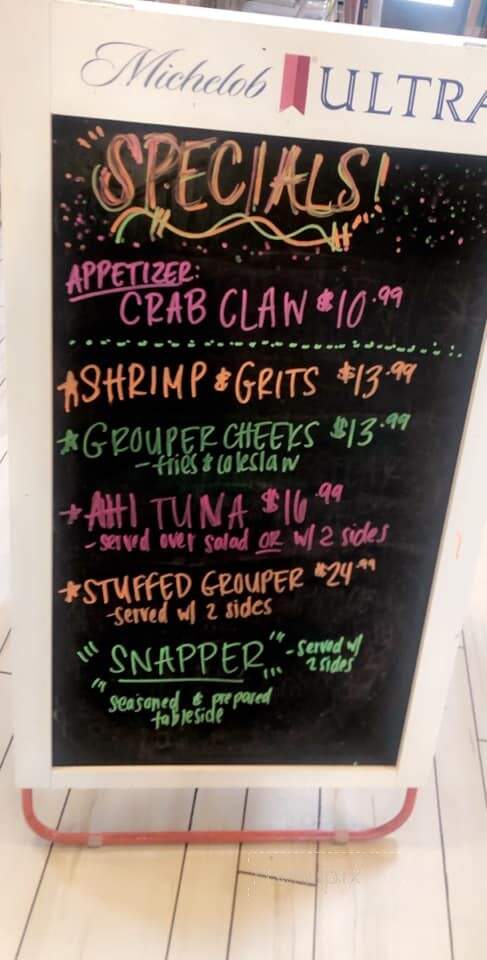 Michelob ULTRA
SPECIALS!
APPETIZER:
CRAB CLAW $10.99
SHRIMP & GRITS $13.99
GROUPER CHEEKS $13.99
- fries & coleslaw
AHI TUNA $16.99
- served over salad OR w/ 2 sides
STUFFED GROUPER $24.99
- served w/ 2 sides
"SNAPPER" - served w/
2 sides
seasoned & prepared
tableside